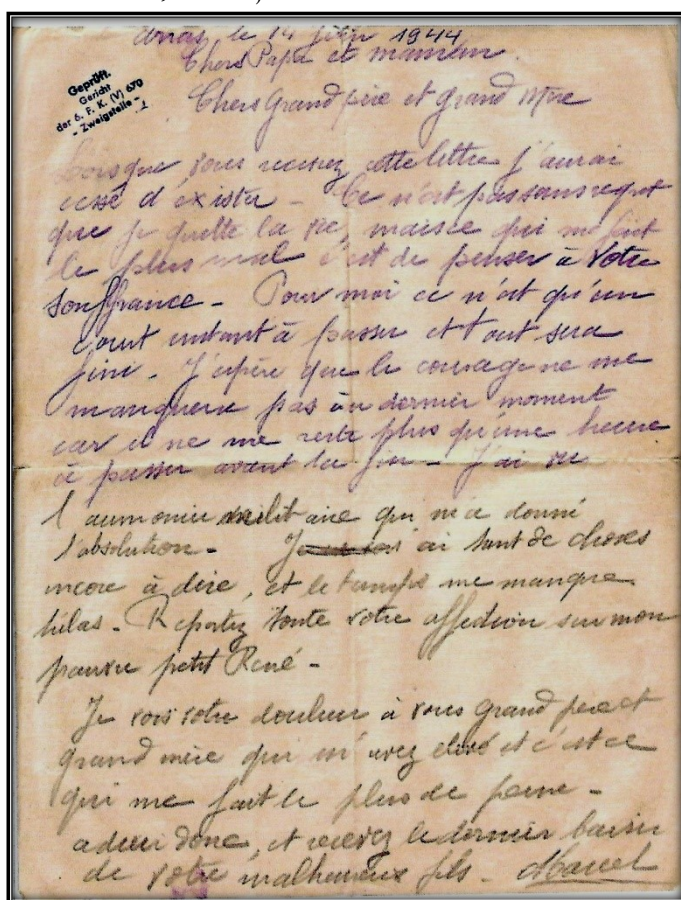 Arras, le 14 juin 1944
Chers Papa et maman
Geprüft.
Gericht
der 6. F. K. (V) 670
- Zweigstelle -
Chers Grand père et Grand Mère
Lorsque vous recevrez cette lettre j'aurai
cessé d'exister - Ce n'est pas sans regret
que je quitte la vie, mais ce qui me fait
le plus mal c'est de penser à votre
souffrance - Pour moi ce n'est qu'un
court instant à passer et tout sera
fini - J'espère que le courage ne me
manquera pas au dernier moment
car il ne me reste plus qu'une heure
à passer avant la fin - J'ai vu
l'aumonier militaire qui m'a donné
l'absolution - J'ai tant de choses
encore à dire, et le temps me manque
hélas - Reportez toute votre affection sur mon
pauvre petit René -
Je vois votre douleur à vous grand père et
grand mère qui m'avez élevé et c'est ce
qui me fait le plus de peine -
adieu donc, et recevez le dernier baiser
de votre malheureux fils - Marcel